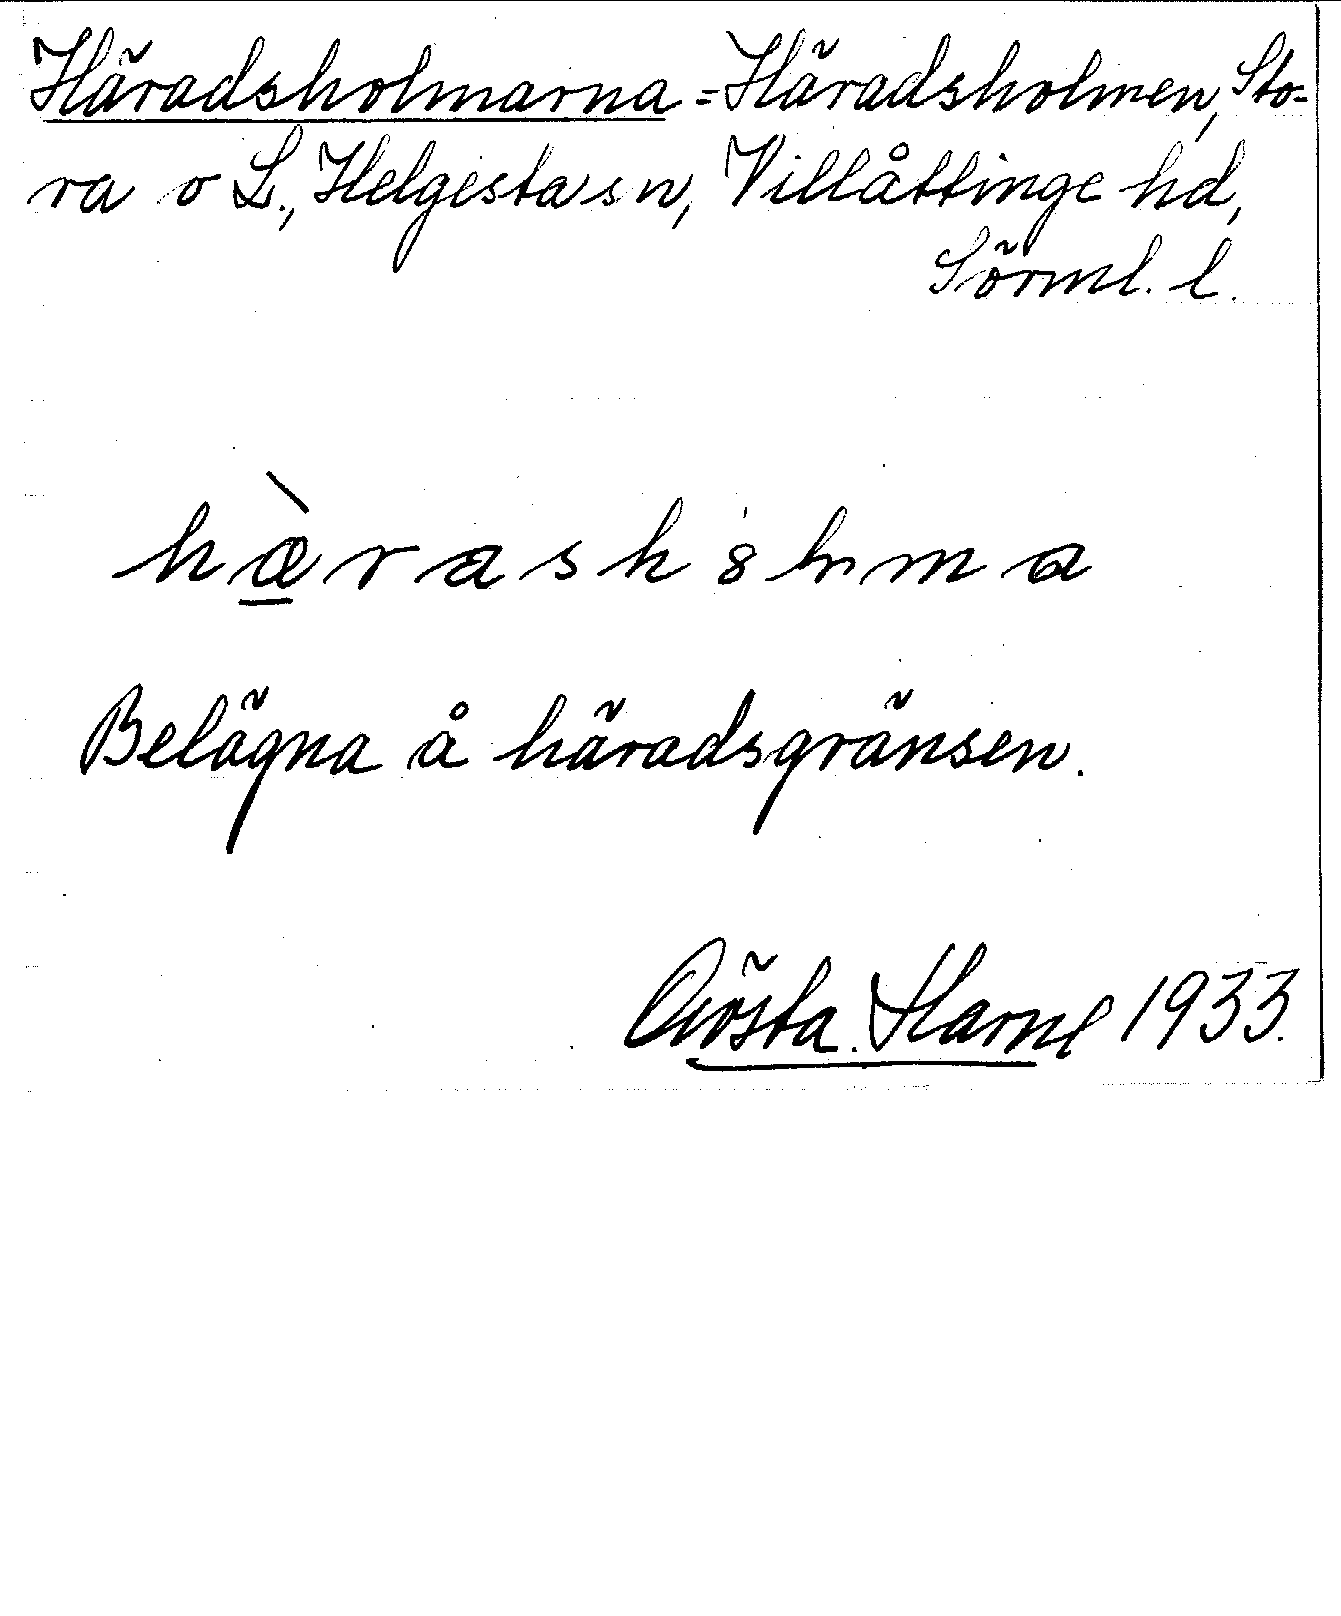 Häradsholmarna = Häradsholmen, Sto-
ra o L., Helgesta sn, Villåttinge hd,
Sörml. l.
Belägna å häradsgränsen.
Gösta Harne 1933.